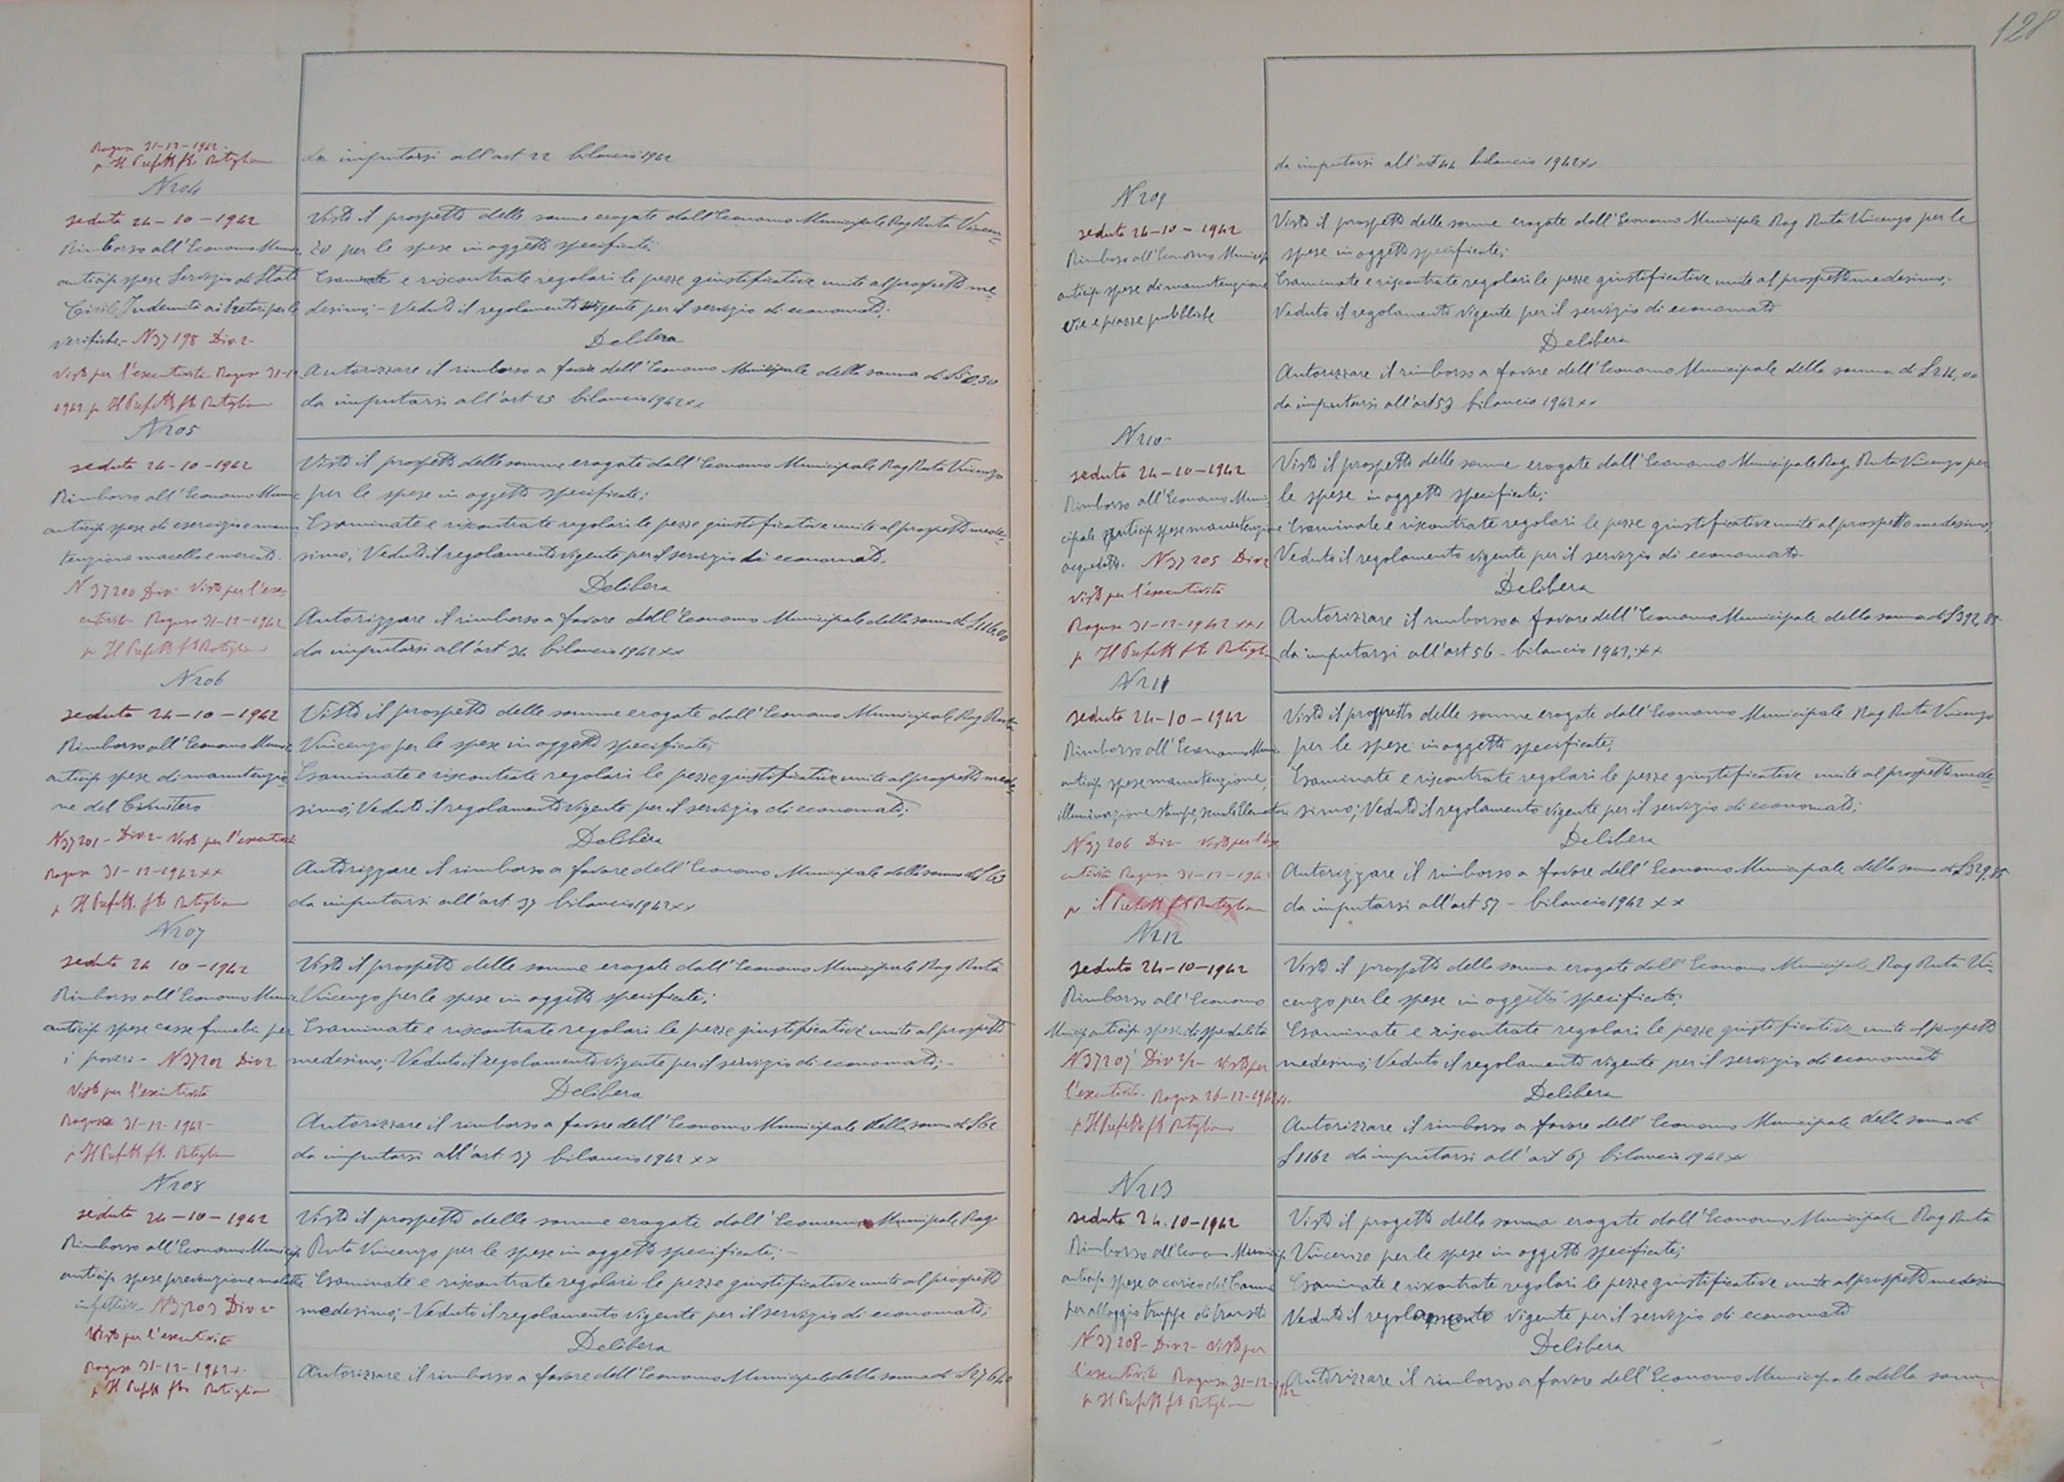 128
Ragusa 31-12-1942
p Il Prefetto fto Rutigliano
da imputarsi all'art 22 bilancio 1942
N 204
seduta 24-10-1942
Rimborso all'Economo Munic
anticip spese Servizio di Stato
Civile Indennità ai Pretori per le
verifiche - N37198 Div 2-
Visto per l'esecutività Ragusa 31-12
1942 p Il Prefetto fto Rutigliano
Visto il prospetto delle somme erogate dall'Economo Municipale Rag Ruta Vincen-
zo per le spese in oggetto specificate;
Esaminate e riscontrate regolari le pezze giustificative unite al prospetto me-
desimo; - Veduto il regolamento vigente per il servizio di economato;
Delibera
Autorizzare il rimborso a favore dell'Economo Municipale della somma di
da imputarsi all'art 25 bilancio 1942 xx
N 205
seduta 24-10-1942
Rimborso all'Economo Munic
anticip spese di esercizio e manu
tenzione macello e mercato.
N 37200 Div. Visto per l'ese-
cutività Ragusa 31-12-1942
p Il Prefetto fto Rutigliano
Visto il prospetto delle somme erogate dall'Economo Municipale Rag Ruta Vincenzo
per le spese in oggetto specificate;
Esaminate e riscontrate regolari le pezze giustificative unite al prospetto mede-
simo; Veduto il regolamento vigente per il servizio di economato.
Delibera
Autorizzare il rimborso a favore dell'Economo Municipale della somma di
da imputarsi all'art 34 bilancio 1942 xx
N 206
seduta 24-10-1942
Rimborso all'Economo Munic
anticip spese di manutenzio-
ne del Cimitero
N37201 - Div 2- Visto per l'esecutività
Ragusa 31-12-1942 xx
p Il Prefetto fto Rutigliano
Visto il prospetto delle somme erogate dall'Economo Municipale Rag Ruta
Vincenzo per le spese in oggetto specificate;
Esaminate e riscontrate regolari le pezze giustificative unite al prospetto mede-
simo; Veduto il regolamento vigente per il servizio di economato;
Delibera
Autorizzare il rimborso a favore dell'Economo Municipale della somma di £ 63
da imputarsi all'art. 37 bilancio 1942 xx
N 207
seduta 24 10-1942
Rimborso all'Economo Munic
anticip spese casse funebri per
i poveri - N37202 Div 2
Visto per l'esecutività
Ragusa 31-12-1942-
p Il Prefetto fto Rutigliano
Visto il prospetto delle somme erogate dall'Economo Municipale Rag Ruta
Vincenzo per le spese in oggetto specificate;
Esaminate e riscontrate regolari le pezze giustificative unite al prospetto
medesimo; - Veduto il regolamento vigente per il servizio di economato; -
Delibera
Autorizzare il rimborso a favore dell'Economo Municipale della somma di
da imputarsi all'art. 37 bilancio 1942 xx
N 208
seduta 24-10-1942
Rimborso all'Economo Municip
anticip spese prevenzione malattie
infettive N37203 Div 2-
Visto per l'esecutività
Ragusa 31-12-1942
p Il Prefetto fto Rutigliano
Visto il prospetto delle somme erogate dall'Economo Municipale Rag
Ruta Vincenzo per le spese in oggetto specificate; -
Esaminate e riscontrate regolari le pezze giustificative unite al prospetto
medesimo; - Veduto il regolamento vigente per il servizio di economato;
Delibera
Autorizzare il rimborso a favore dell'Economo Municipale della somma di
da imputarsi all'art 44 bilancio 1942 xx
N 209
seduta 24-10-1942
Rimborso all'Economo Municip
anticip spese di manutenzione
vie e piazze pubbliche
Visto il prospetto delle somme erogate dall'Economo Municipale Rag Ruta Vincenzo per le
spese in oggetto specificate;
Esaminate e riscontrate regolari le pezze giustificative unite al prospetto medesimo;
Veduto il regolamento vigente per il servizio di economato
Delibera
Autorizzare il rimborso a favore dell'Economo Municipale della somma di
da imputarsi all'art 53 bilancio 1942 xx
N 210-
seduta 24-10-1942
Rimborso all'Economo Muni-
cipale anticip spese manutenzione
acquedotto. N37205 Div 2
Visto per l'esecutività
Ragusa 31-12-1942
p Il Prefetto fto Rutigliano
Visto il prospetto delle somme erogate dall'Economo Municipale Rag Ruta Vincenzo per
le spese in oggetto specificate;
Esaminate e riscontrate regolari le pezze giustificative unite al prospetto medesimo;
Veduto il regolamento vigente per il servizio di economato
Delibera
Autorizzare il rimborso a favore dell'Economo Municipale della somma di £ 392,85
da imputarsi all'art 56 - bilancio 1942, xx
N 211
seduta 24-10-1942
Rimborso all'Economo Munic
anticip spese manutenzione,
illuminazione stampe, scuole Elementari
N37206 Div 2- Visto per l'ese
cutività Ragusa 31-12-1942
p il Prefetto fto Rutigliano
Visto il prospetto delle somme erogate dall'Economo Municipale Rag Ruta Vincenzo
per le spese in oggetto specificate;
Esaminate e riscontrate regolari le pezze giustificative unite al prospetto mede-
simo; Veduto il regolamento vigente per il servizio di economato;
Delibera
Autorizzare il rimborso a favore dell'Economo Municipale della somma di £ 329,85
da imputarsi all'art 57 - bilancio 1942 xx
N 212
seduta 24-10-1942
Rimborso all'Economo
Munic anticip spese di spedalità
N37207 Div 2/2 - Visto per
l'esecutività. Ragusa 26-12-1942
p Il Prefetto fto Rutigliano
Visto il prospetto della somma erogate dall'Economo Municipale Rag Ruta Vin-
cenzo per le spese in oggetto specificate;
Esaminate e riscontrate regolari le pezze giustificative unite al prospetto
medesimo; Veduto il regolamento vigente per il servizio di economato
Delibera
Autorizzare il rimborso a favore dell'Economo Municipale della somma di
£ 1162 da imputarsi all'art 67 bilancio 1942 xx
N 213
seduta 24.10-1942
Rimborso all'Economo Municip
anticip spese a carico del Comune
per alloggio truppe di transito
N 37208 - Div 2- Visto per
l'esecutività Ragusa 31-12-1942
p Il Prefetto fto Rutigliano
Visto il progetto della somma erogate dall'Economo Municipale Rag Ruta
Vincenzo per le spese in oggetto specificate;
Esaminate e riscontrate regolari le pezze giustificative unite al prospetto medesimo
Veduto il regolamento vigente per il servizio di economato
Delibera
Autorizzare il rimborso a favore dell'Economo Municipale della somma